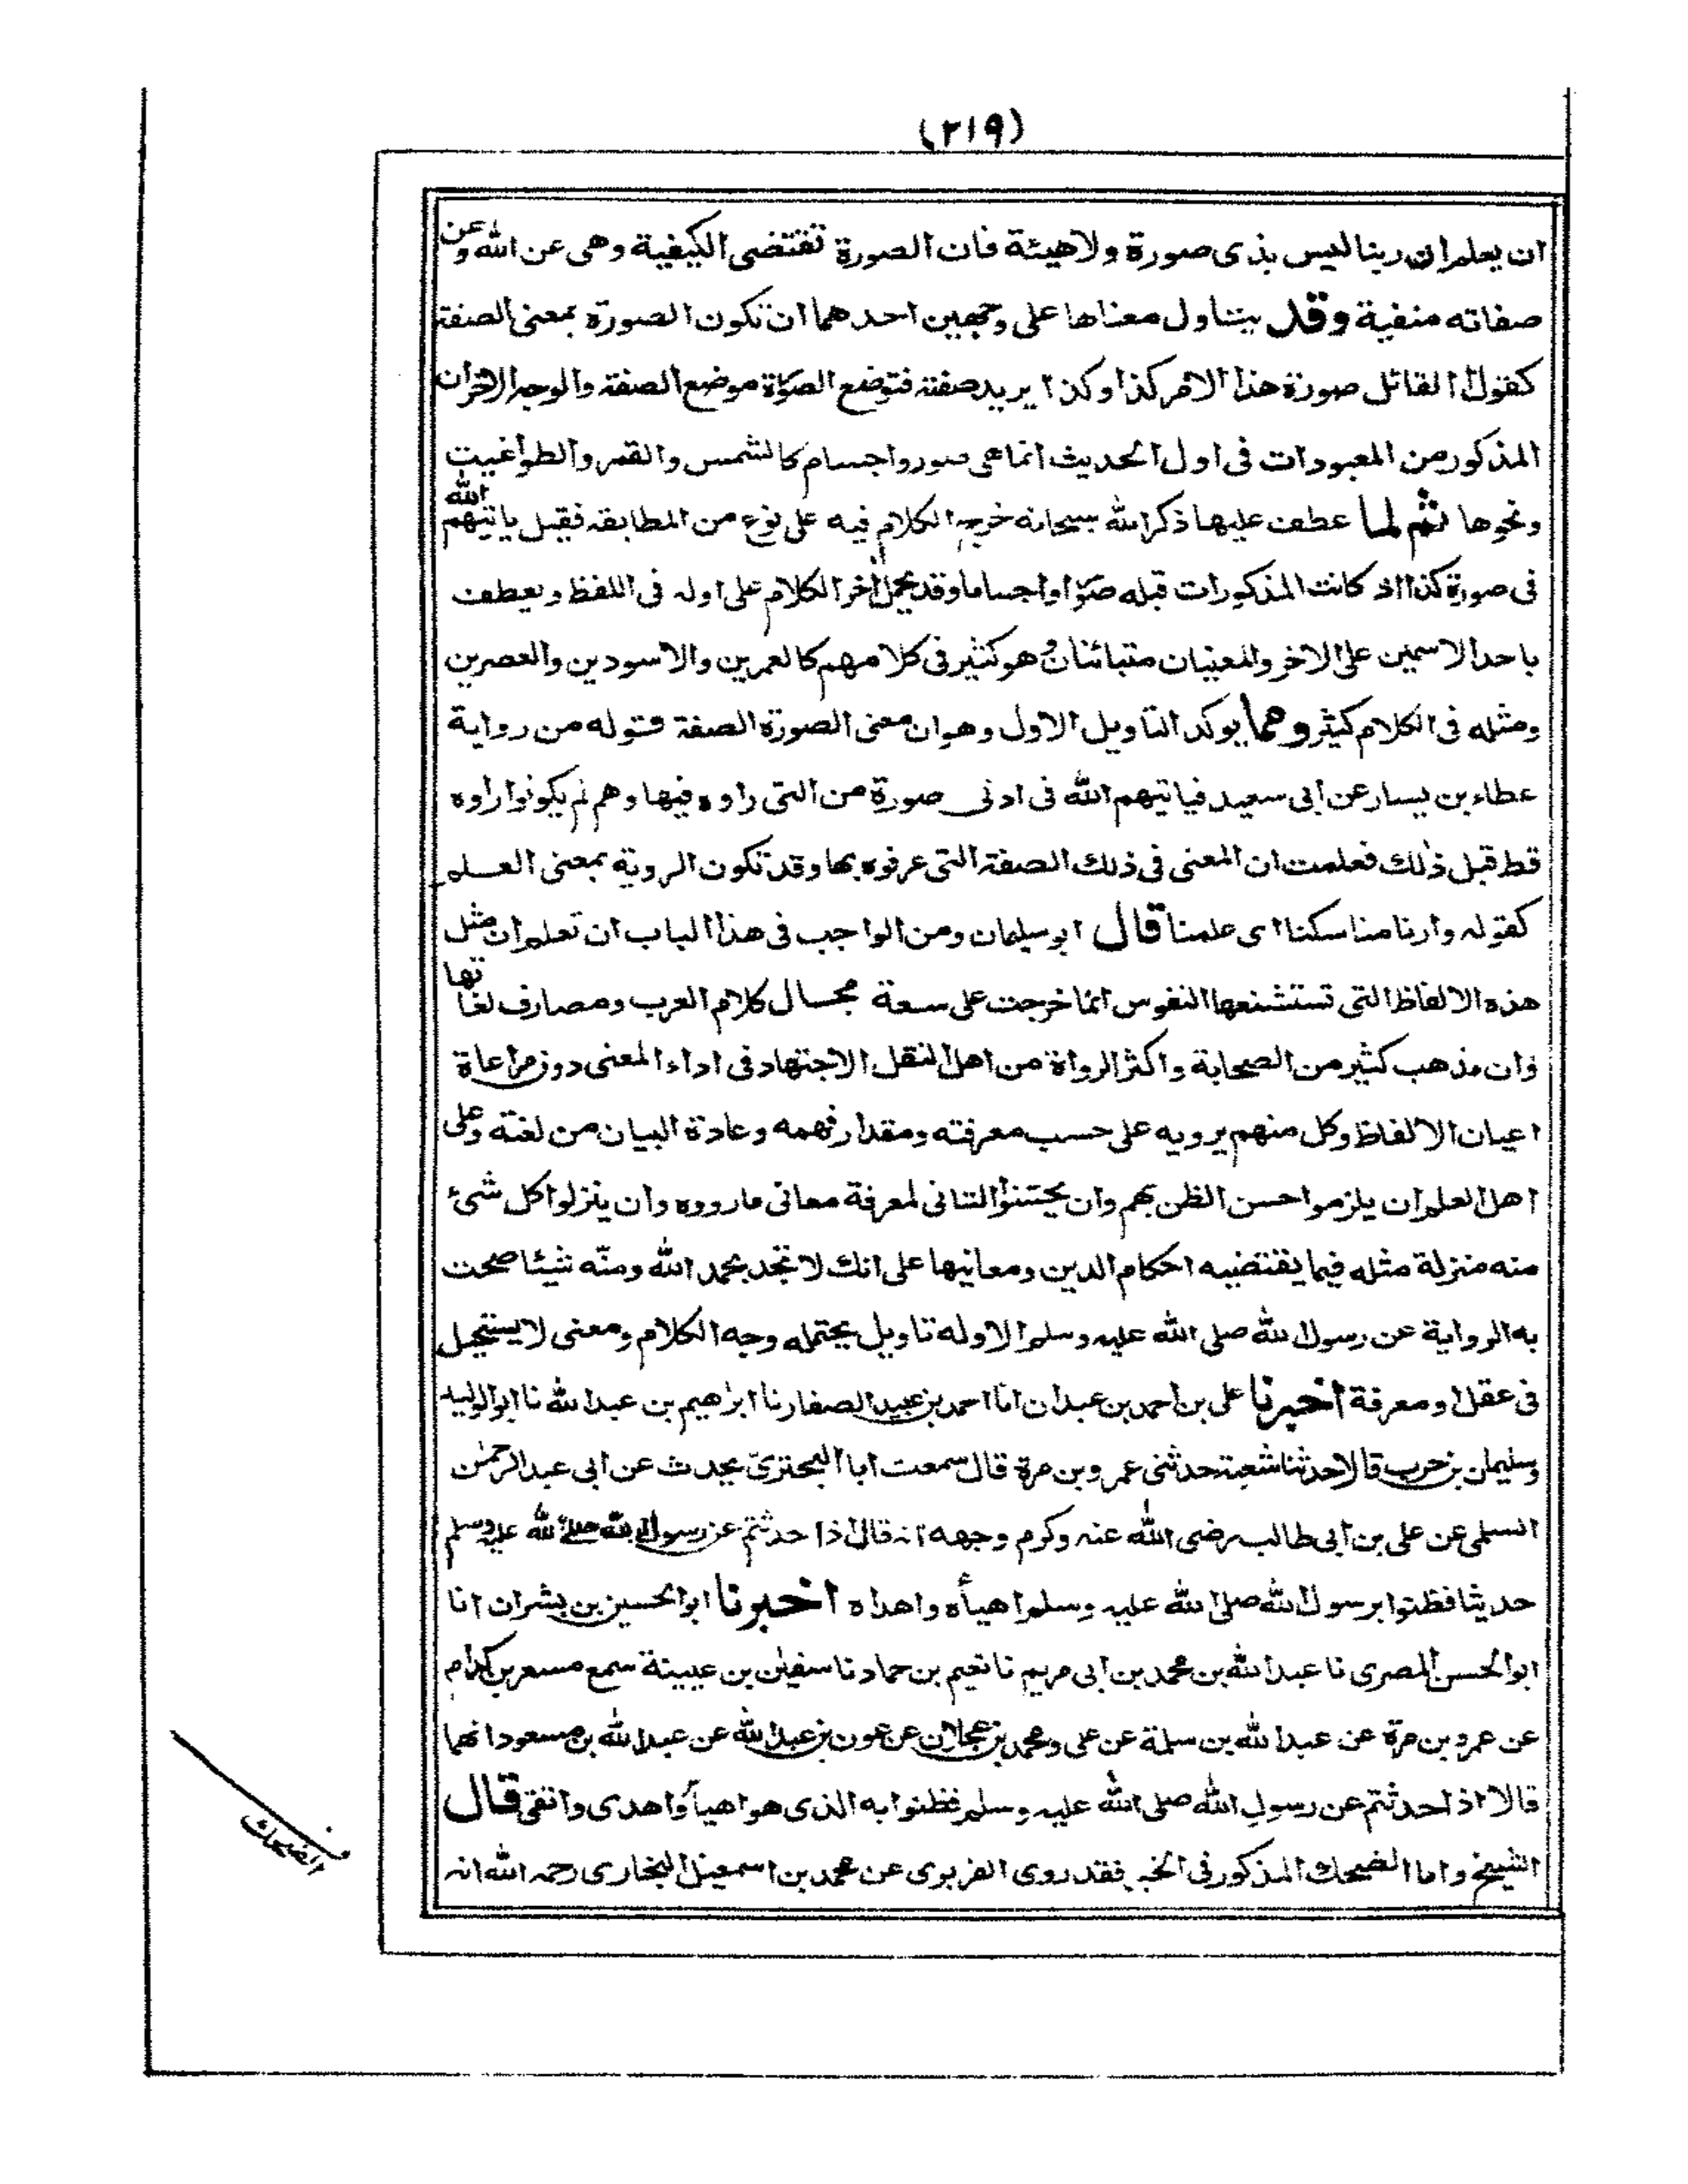 (٢١٩)
ان يعلم ان ربنا ليس بذى صورة ولا هيئة فان الصورة تقتضى الكيفية وهى عن الله وعن
صفاته منفية وقد يتاول معناها على وجهين احدهما ان تكون الصورة بمعنى الصفة
كقول القائل صورة هذا الامر كذا وكذا يريد صفته فتوضع الصورة موضع الصفة والوجه الاخر ان
المذكور من المعبودات فى اول الحديث انما هى صور واجسام كالشمس والقمر والطواغيت
ونحوها ثم لما عطف عليها ذكر الله سبحانه خرج الكلام فيه على نوع من المطابقة فقيل ياتيهم الله
فى صورة كذا اذ كانت المذكورات قبله صورا واجساما وقد يحمل أخر الكلام على اوله فى اللفظ ويعطف
باحد الاسمين على الاخر والمعنيان متبائنان وهو كثير فى كلامهم كالعمرين والاسودين والعصرين
ومثله فى الكلام كثير ومما يوكد التاويل الاول وهو ان معنى الصورة الصفة قوله من رواية
عطاء بن يسار عن ابى سعيد فياتيهم الله فى ادنى صورة من التى راوه فيها وهم لم يكونوا راوه
قط قبل ذلك فعلمت ان المعنى فى ذلك الصفة التى عرفوه بها وقد تكون الروية بمعنى العلم
كقوله وارنا مناسكنا اى علمنا قال ابو سليمان ومن الواجب فى هذا الباب ان تعلم ان مثل
هذه الالفاظ التى تستشنعها النفوس انما خرجت على سعة مجال كلام العرب ومصارف لغاتها
وان مذهب كثير من الصحابة واكثر الرواة من اهل النقل الاجتهاد فى اداء المعنى دون مراعاة
اعيان الالفاظ وكل منهم يرويه على حسب معرفته ومقدار فهمه وعادة البيان من لغته وعلى
اهل العلم ان يلزموا احسن الظن بهم وان يحسنوا التانى لمعرفة معانى مارووه وان ينزلوا كل شئ
منه منزلة مثله فيما يقتضيه احكام الدين ومعانيها على انك لا تجد بحمد الله ومنّه شيئا صحت
به الرواية عن رسول الله صلى الله عليه وسلم الا وله تاويل يحتمله وجه الكلام ومعنى لا يستحيل
فى عقل او معرفة اخبرنا على بن احمد بن عبدان انا احمد بن عبيد الصفار نا ابراهيم بن عبد الله نا ابو الوليد
وسليمان بن حرب قالا حدثنا شعبة حدثنى عمرو بن مرة قال سمعت ابا البخترىّ يحدث عن ابى عبد الرحمٰن
السلمى عن على بن ابى طالب رضى الله عنه وكرم وجهه انه قال اذا حدثتم عن رسول الله صلى الله عليه وسلم
حديثا فظنوا برسول الله صلى الله عليه وسلم اهيأه واهداه اخبرنا ابو الحسين بن بشران انا
ابو الحسن المصرى نا عبد الله بن محمد بن ابى مريم نا نعيم بن حماد نا سفيٰن بن عيينة سمع مسعر بن كدام
عن عمرو بن مرة عن عبد الله بن سلمة عن على ومحمد بن عجلان عن عون بن عبد الله عن عبد الله بن مسعود انهما
قالا اذا حدثتم عن رسول الله صلى الله عليه وسلم فظنوا به الذى هو اهيأ واهدى واتقى قال
الشيخ واما الضحك المذكور فى الخبر فقد روى الفربرى عن محمد بن اسمعيل البخارى رحمه الله انه
الضحك